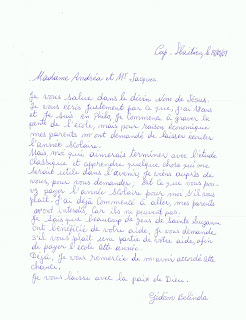 Cap-Haïtien, le
Madame Andréa et Mr Jacques
Je vous salue dans le divin Nom de Jésus.
Je vous écris justement parce que, j'ai 21 ans
et je suis en Philo, Je commence à gravir la
pente de l'école, mais pour raison économique
mes parents m'ont demandé de laisser écouler
l'année scolaire.
Mais moi qui aimerais terminer avec l'étude
classique et apprendre quelque chose qui me
serait utile dans l'avenir, je viens auprès de
vous, pour vous demander, est-ce que vous pou-
vez payer l'année scolaire pour moi s'il vous
plaît. J'ai déjà commencé à aller, mes parents
m'ont interdit, car ils ne peuvent pas.
Je sais que beaucoup de gens de Sainte Suzanne
ont bénéficié de votre aide, je vous demande
s'il vous plaît une partie de votre aide, afin
de payer l'école cette année.
Déjà, je vous remercie de m'avoir attendu cette
chance.
Je vous laisse avec la paix de Dieu.
Belinda